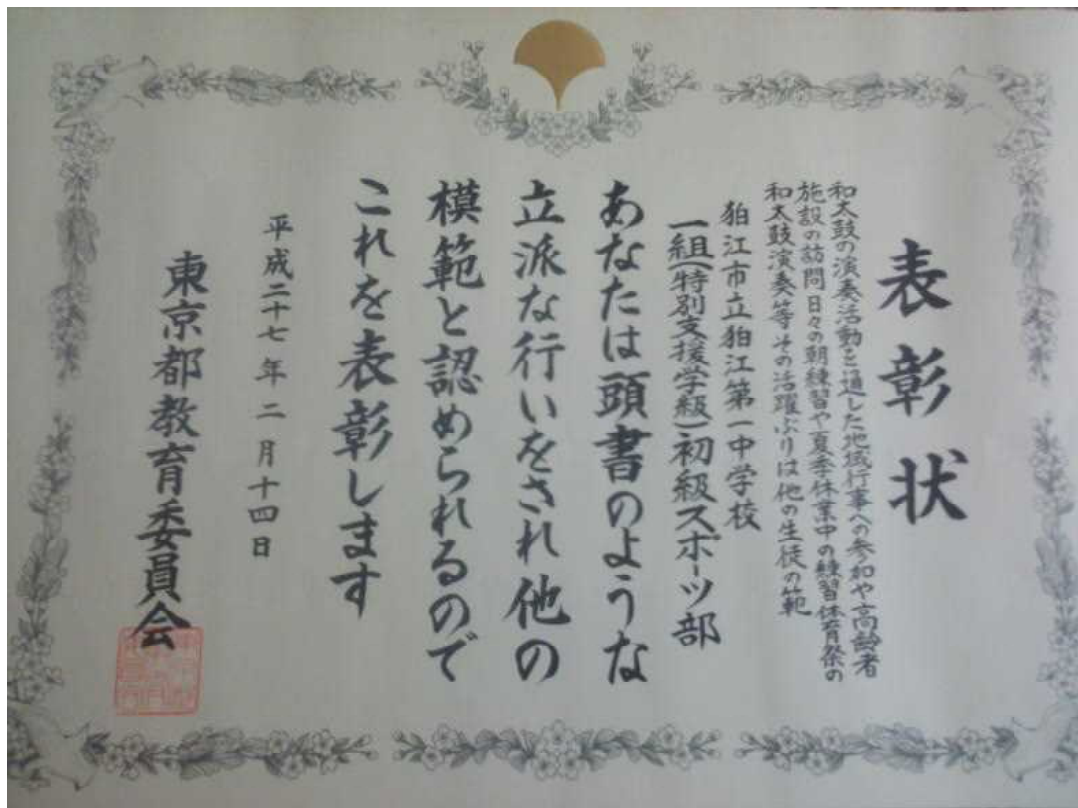 表彰状
和太鼓の演奏活動を通した地域行事への参加や高齢者
施設の訪問日々の朝練習や夏季休業中の練習体育祭の
和太鼓演奏等その活躍ぶりは他の生徒の範
狛江市立狛江第一中学校
一組(特別支援学級)初級スポーツ部
あなたは頭書のような
立派な行いをされ他の
模範と認められるので
これを表彰します
平成二十七年二月十四日
東京都教育委員会